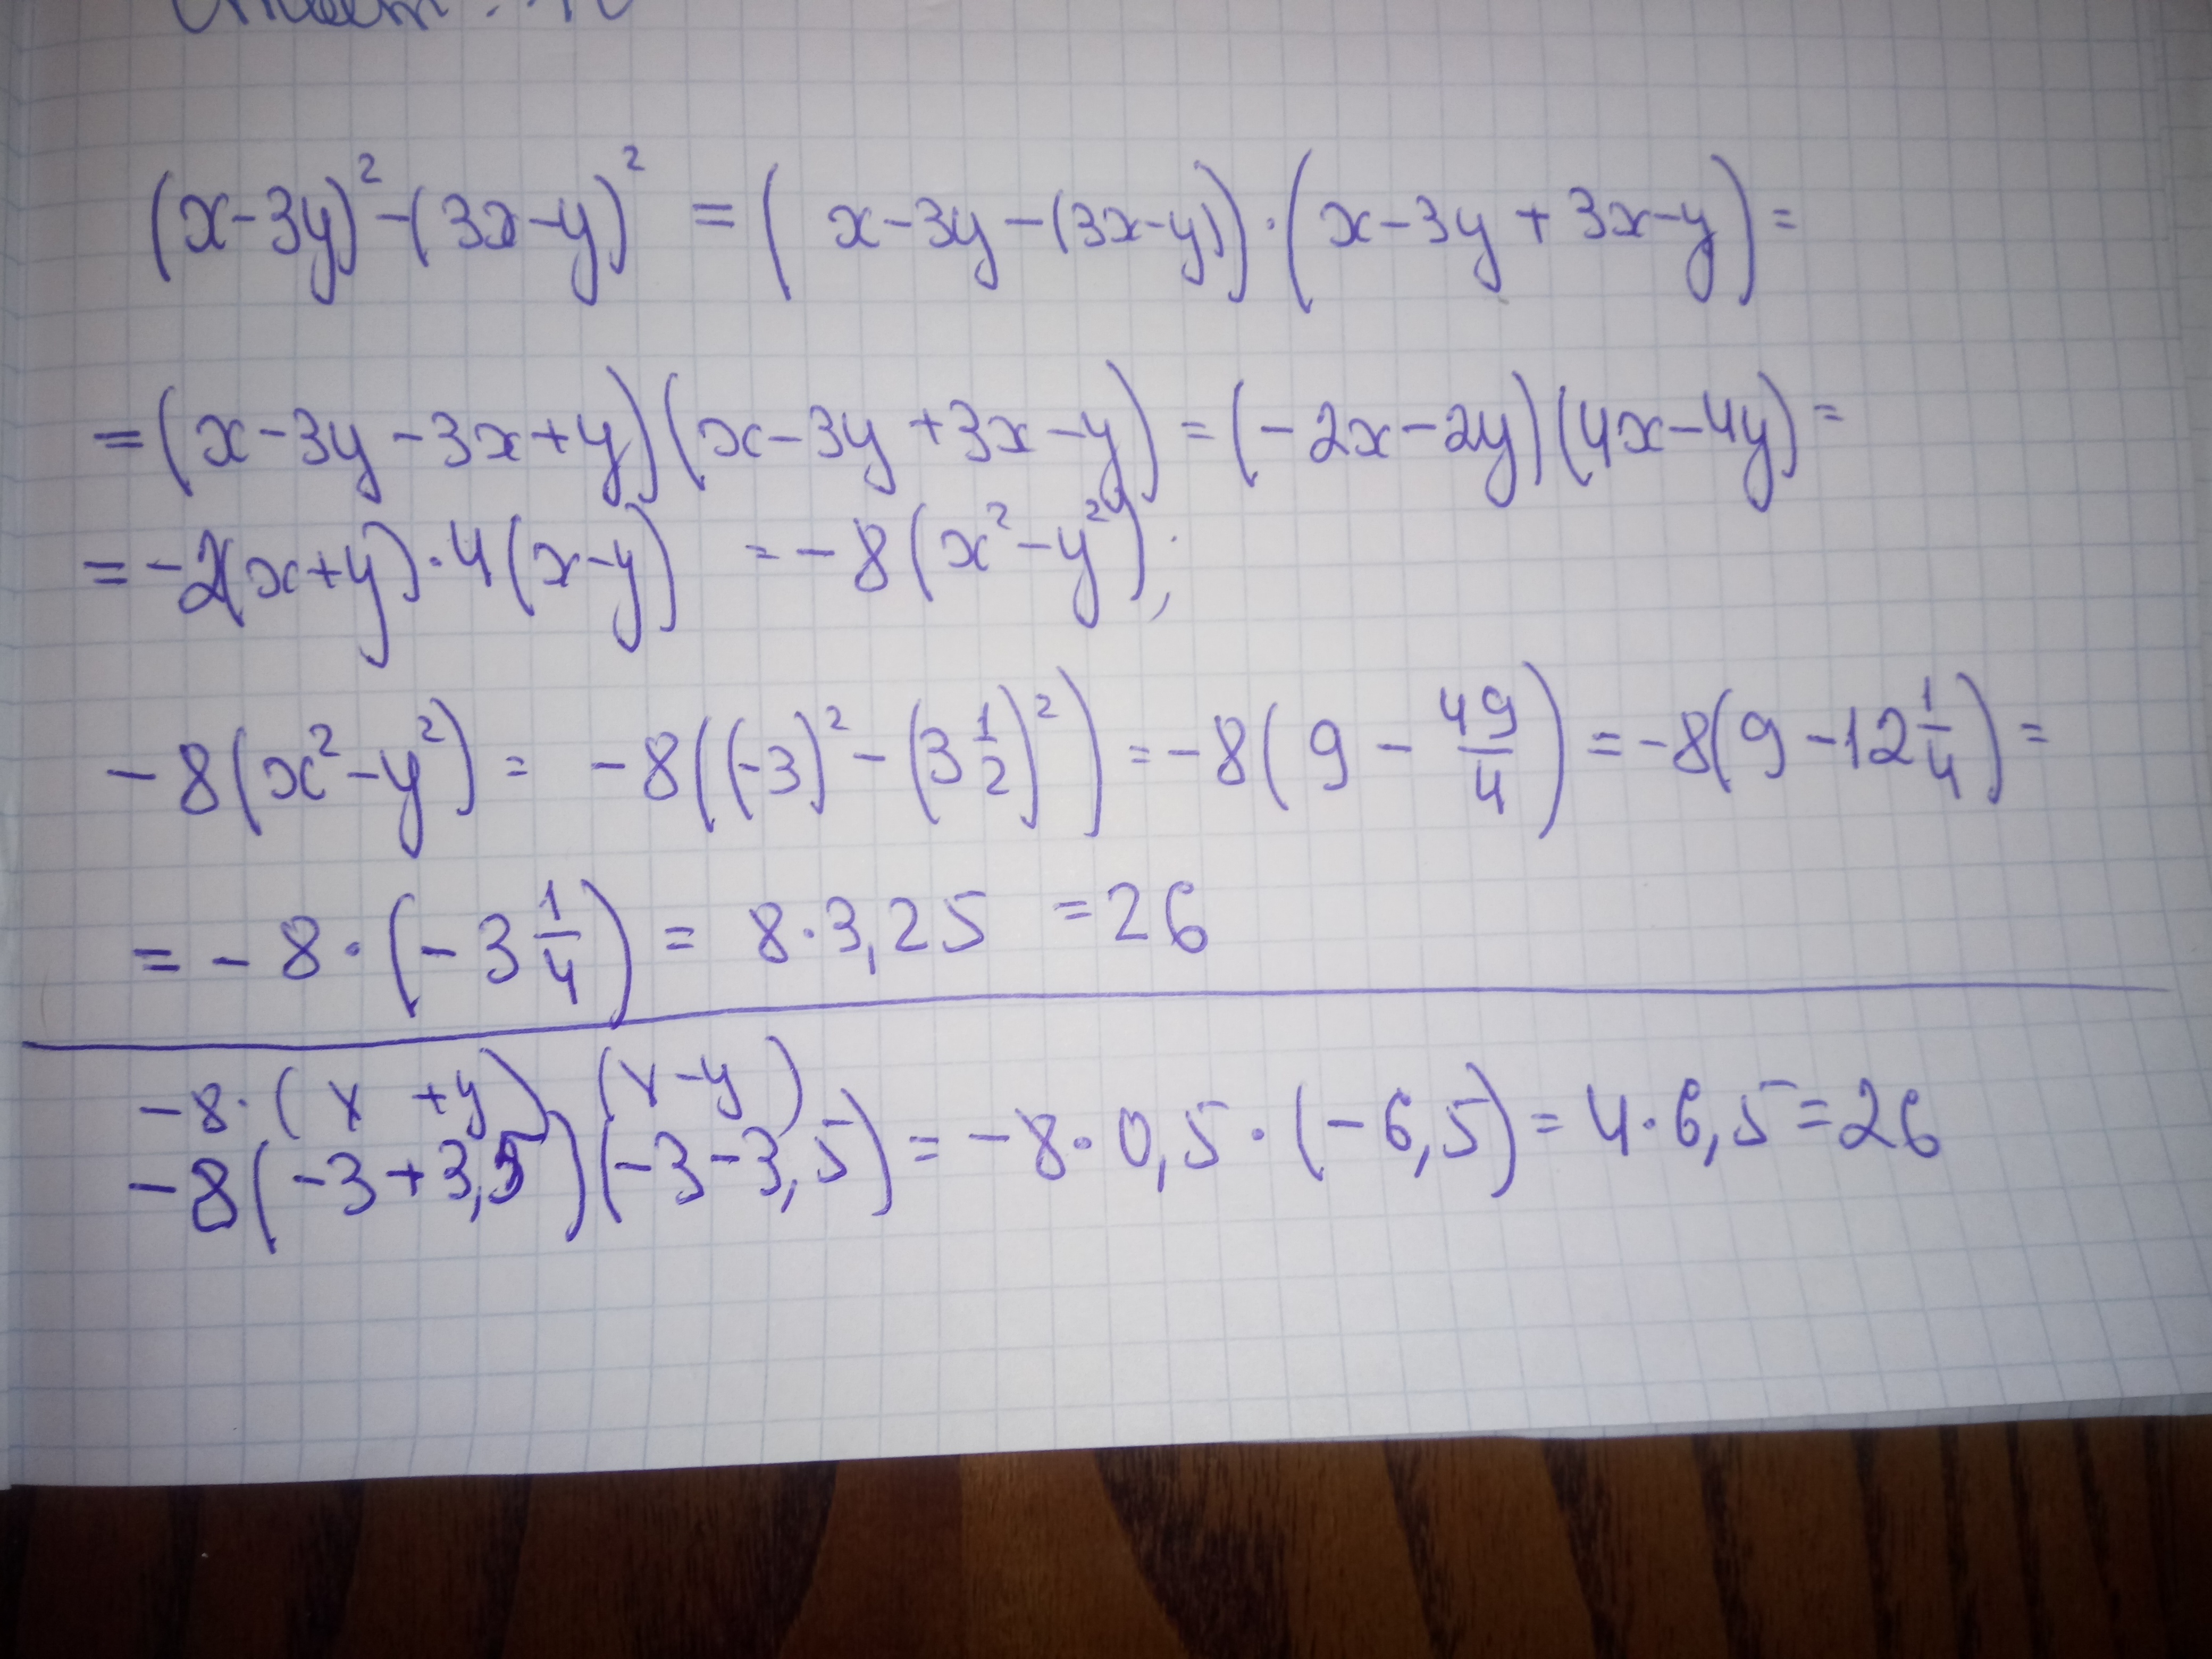 (x-3y)²-(3x-y)² = (x-3y-(3x-y))·(x-3y+3x-y)=
=(x-3y-3x+y)(x-3y+3x-y)=(-2x-2y)(4x-4y)=
=-2(x+y)·4(x-y) =-8(x²-y²);
-8(x²-y²)= -8((-3)²-(3 1/2)²)=-8(9-49/4)=-8(9-12 1/4)=
=-8·(-3 1/4)= 8·3,25 =26
-8·(x+y)(x-y)
-8(-3+3,5)(-3-3,5)=-8·0,5·(-6,5)=4·6,5=26